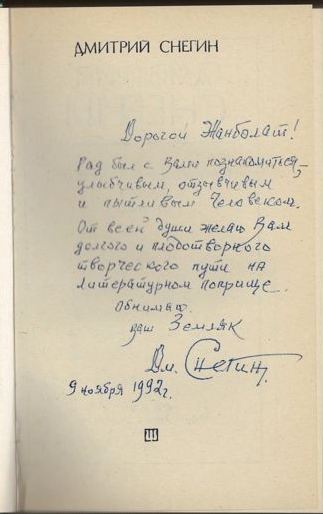 ДМИТРИЙ СНЕГИН
Дорогой Жанболат!
Рад был с Вами познакомиться,
улыбчивым, отзывчивым
и пытливым Человеком.
От всей души желаю Вам
долгого и плодотворного
творческого пути на
литературном поприще.
Обнимаю.
ваш Земляк
Дм. Снегин.
9 ноября 1992г.